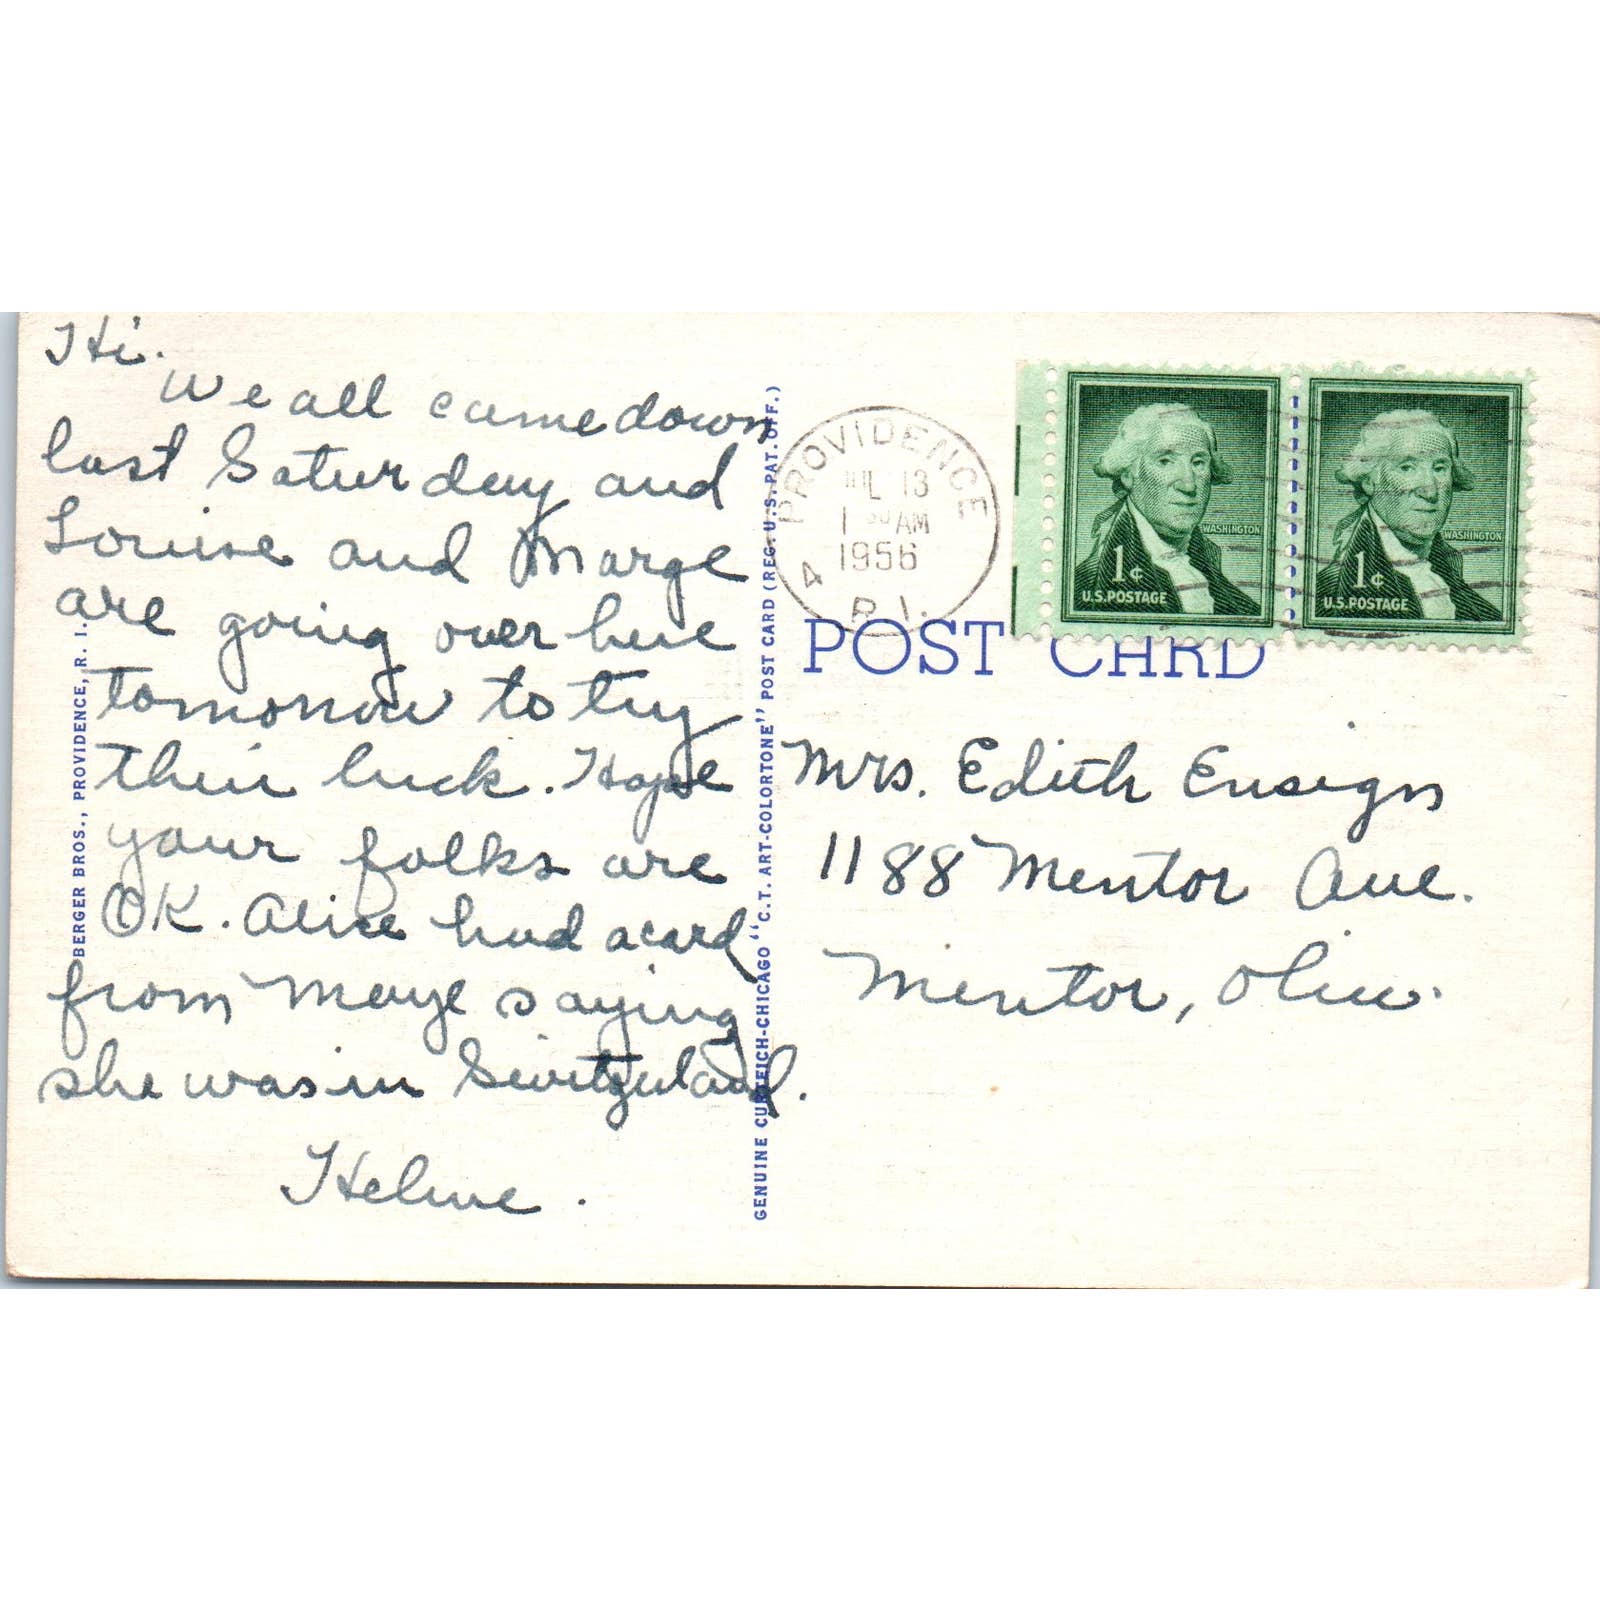 Hi.
We all came down
last Saturday and
Louise and Marge
are going over here
tomorrow to try
their luck. Hope
your folks are
OK. Alice had a card
from Marge saying
she was in Switzerland.
Helene.
BERGER BROS., PROVIDENCE, R. I.
GENUINE CURTEICH-CHICAGO "C.T. ART-COLORTONE" POST CARD (REG. U.S. PAT. OFF.)
PROVIDENCE
JUL 13
1 30 AM
1956
4 R.I.
WASHINGTON
1¢
U.S. POSTAGE
WASHINGTON
1¢
U.S. POSTAGE
POST CARD
Mrs. Edith Ensign
1188 Mentor Ave.
Mentor, Ohio.